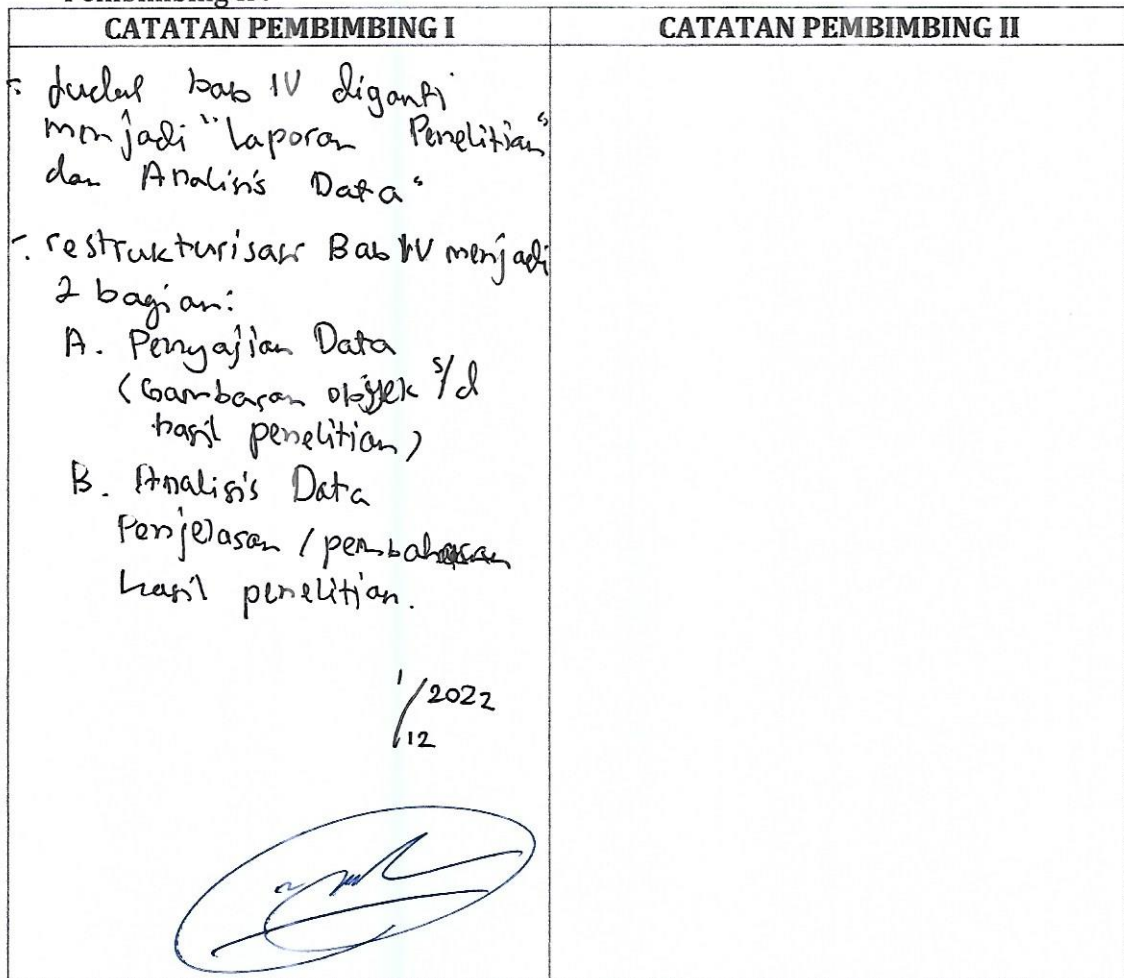 CATATAN PEMBIMBING I
CATATAN PEMBIMBING II
- Judul bab IV diganti
menjadi "Laporan Penelitian"
dan Analisis Data"
- restrukturisasi Bab IV menjadi
2 bagian:
A. Penyajian Data
(Gambaran objek s/d
hasil penelitian)
B. Analisis Data
Penjelasan / pembahasan
hasil penelitian.
1/12 2022